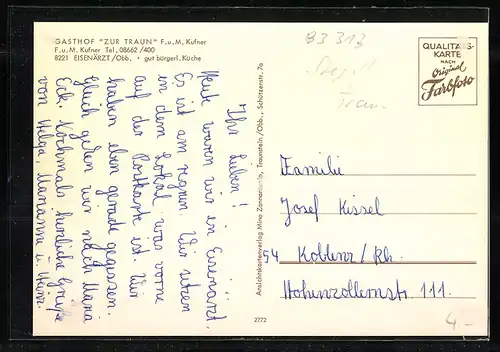 GASTHOF "ZUR TRAUN" F.u.M. Kufner
F.u.M. Kufner Tel. 08662/400
8221 EISENÄRZT/Obb. • gut bürgerl. Küche
83 313
QUALITÄTS-
KARTE
NACH
Original
Farbfoto
Ihr Lieben!
Heute waren wir in Eisenärzt.
Es ist am regnen. Wir sitzen
in dem Lokal was vorne
auf der Postkarte ist. Wir
haben eben gerade gegessen.
Gleich gehen wir nach Maria
Eck. Nochmals herzliche Grüße
von Helga, Marianne u. Heinz.
Ansichtskartenverlag Mino Zannantonio, Traunstein/Obb., Schützenstr. 7a
2772
Familie
Josef Kissel
54 Koblenz/Rh.
Hohenzollernstr. 111.
4.-